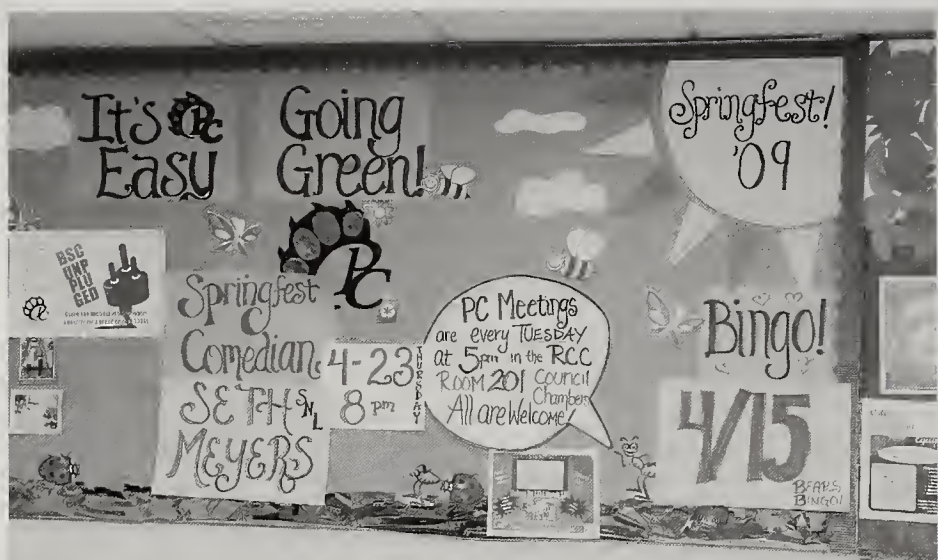 It's PC
Easy
Going
Green!
Springfest!
'09
BSC
UNP
PLU
GED
PC
Springfest
Comedian
SETH SNL
MEYERS
4-23
8 pm
THURSDAY
PC Meetings
are every TUESDAY
at 5pm in the RCC
ROOM 201 Council
Chambers
All are Welcome!
Bingo!
4/15
BEARS
BINGO!